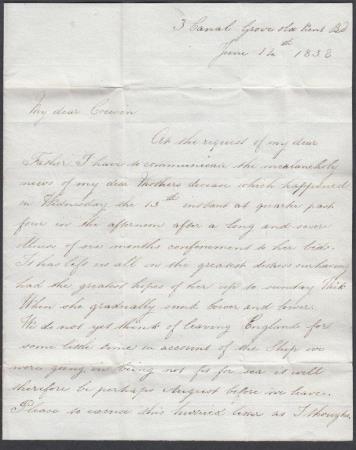 3 Canal Grove Old Kent Rd
June 14th 1838
My dear Cousin
At the request of my dear
Father I have to communicate the mealancholy
news of my dear Mothers decease which happened
on Wednesday the 13th instant at quarter past
four in the afternoon after a long and severe
illness of six months confinement to her bed.
It has left us all in the greatest distress
had the greatest hopes of her up to Sunday
When she gradually sunk lower and lower.
We do not yet think of leaving England for
some little time on account of the Ship we
were going in being not fit for sea it will
therefore be perhaps August before we leave.
Please to excuse this hurried lines as I thought